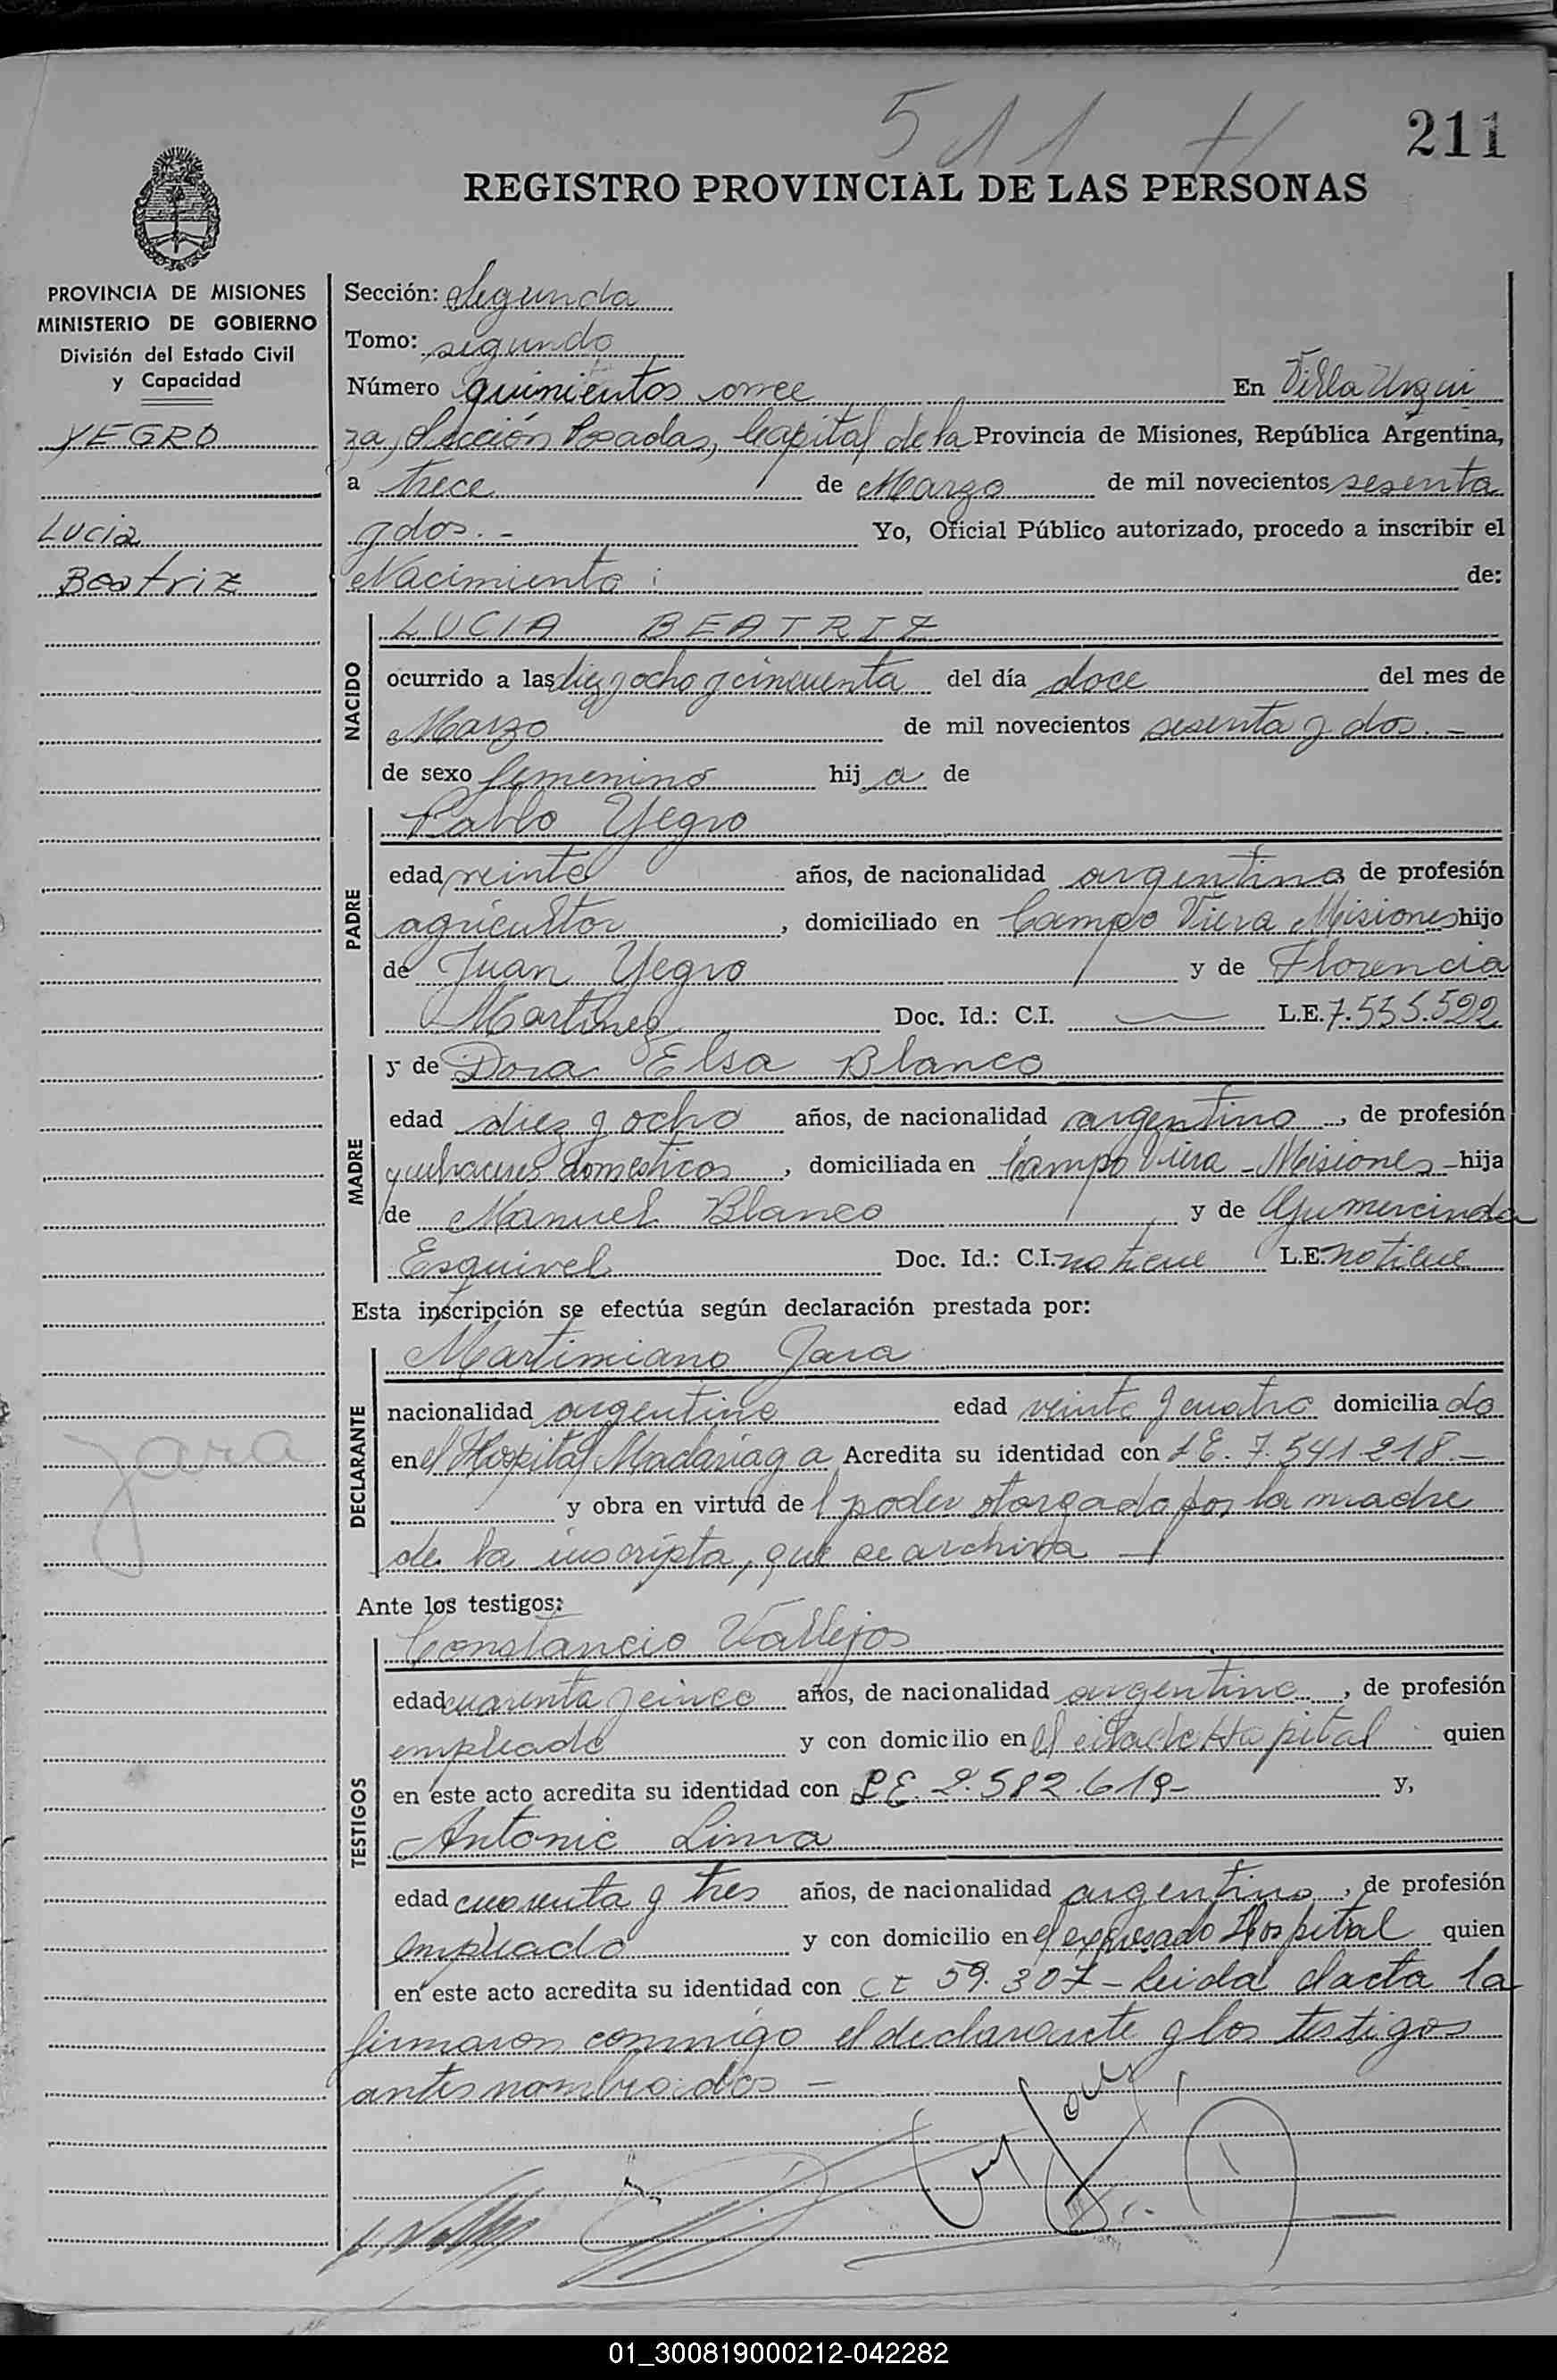 511
211
REGISTRO PROVINCIAL DE LAS PERSONAS
PROVINCIA DE MISIONES
MINISTERIO DE GOBIERNO
División del Estado Civil
y Capacidad
YEGRO
Lucia
Beatriz
Jara
Sección: Segunda
Tomo: segundo
Número quinientos once En Villa Urqui
za, Sección Posadas, Capital de la Provincia de Misiones, República Argentina,
a trece de Marzo de mil novecientos sesenta
y dos.- Yo, Oficial Público autorizado, procedo a inscribir el
Nacimiento: de:
NACIDO
LUCIA BEATRIZ
ocurrido a las diez y ocho y cincuenta del día doce del mes de
Marzo de mil novecientos sesenta y dos.-
de sexo femenino hij a de
PADRE
Pablo Yegro
edad veinte años, de nacionalidad argentina de profesión
agricultor, domiciliado en Campo Viera Misiones hijo
de Juan Yegro y de Florencia
Martinez Doc. Id.: C.I. — L.E. 7.535.522
MADRE
y de Dora Elsa Blanco
edad diez y ocho años, de nacionalidad argentina, de profesión
quehaceres domesticos, domiciliada en Campo Viera - Misiones - hija
de Manuel Blanco y de Gumercinda
Esquivel Doc. Id.: C.I. no tiene L.E. no tiene
Esta inscripción se efectúa según declaración prestada por:
DECLARANTE
Martimiano Jara
nacionalidad argentino edad veinte y cuatro domicilia do
en el Hospital Madariaga Acredita su identidad con L E. 7.541.218.-
y obra en virtud de l poder otorgado por la madre
de la inscripta, que se archiva —
Ante los testigos:
TESTIGOS
Constancio Vallejos
edad cuarenta y cinco años, de nacionalidad argentino, de profesión
empleado y con domicilio en el citado Hospital quien
en este acto acredita su identidad con L E. 2.582.619- y,
Antonio Lima
edad cuarenta y tres años, de nacionalidad argentino, de profesión
empleado y con domicilio en el expresado Hospital quien
en este acto acredita su identidad con C I 59.307- Leida el acta la
firmaron conmigo el declarante y los testigos
antes nombrados -
01_300819000212-042282